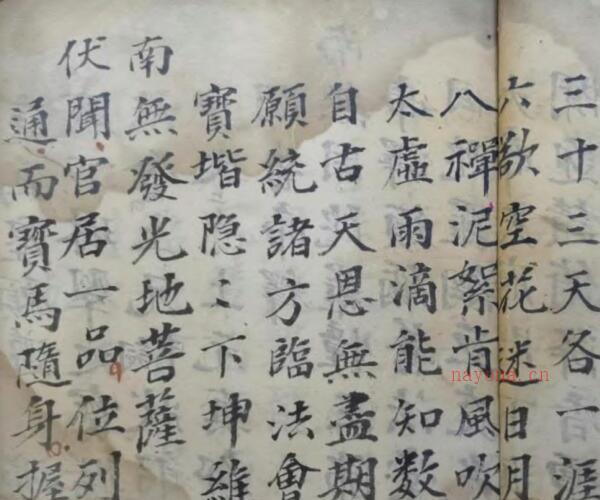 三十三天各一涯
六欲空花迷日月
八禪泥絮肯風吹
太虛雨滴能知数
自古天恩無盡期
願統諸方臨法會
寶堦隐〻下坤維
南無發光地菩薩
伏聞官居一品位列
通而寶馬隨身握
nayona.cn